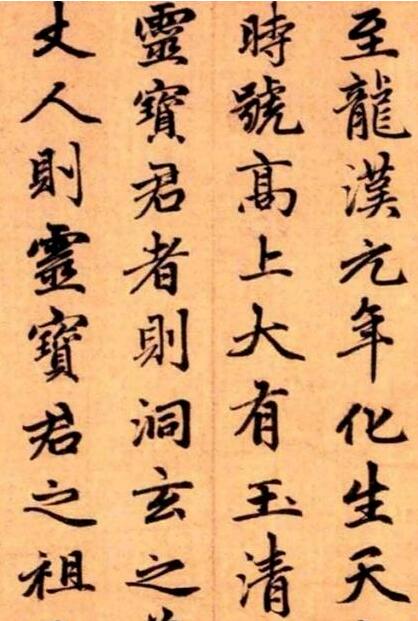 至龍漢元年化生天
時號高上大有玉清
靈寶君者則洞玄之
丈人則靈寶君之祖